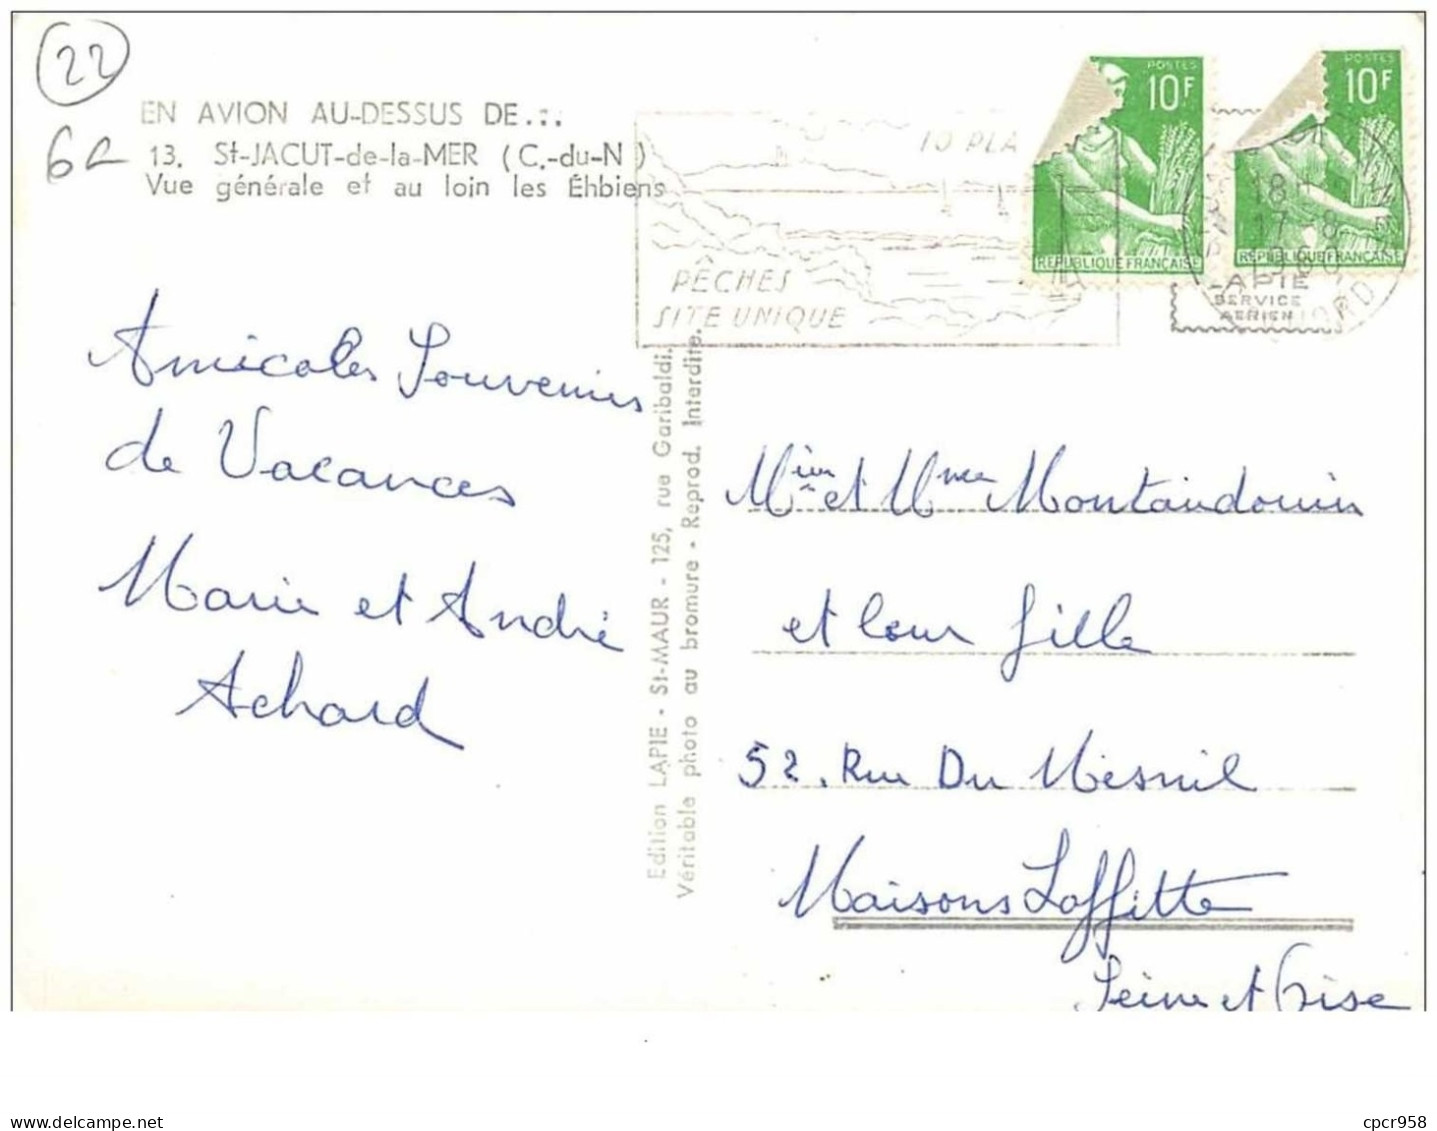 22
EN AVION AU-DESSUS DE...
13. St-JACUT-de-la-MER (C.-du-N)
Vue générale et au loin les Éhbiens
10 PLA
PÊCHES
SITE UNIQUE
POSTES
10F
REPUBLIQUE FRANÇAISE
POSTES
10F
REPUBLIQUE FRANÇAISE
18 H
17-8
1960
LAPIE
SERVICE
AERIEN
Amicales Souvenirs
de Vacances
Marie et André
Achard
Edition LAPIE - St-MAUR - 125, rue Garibaldi.
Véritable photo au bromure - Reprod. Interdite.
et Mme Montaudouin
et leur fille
52. Rue Du Mesnil
Maisons Laffitte
Seine et Oise
delcampe.net
cpcr958